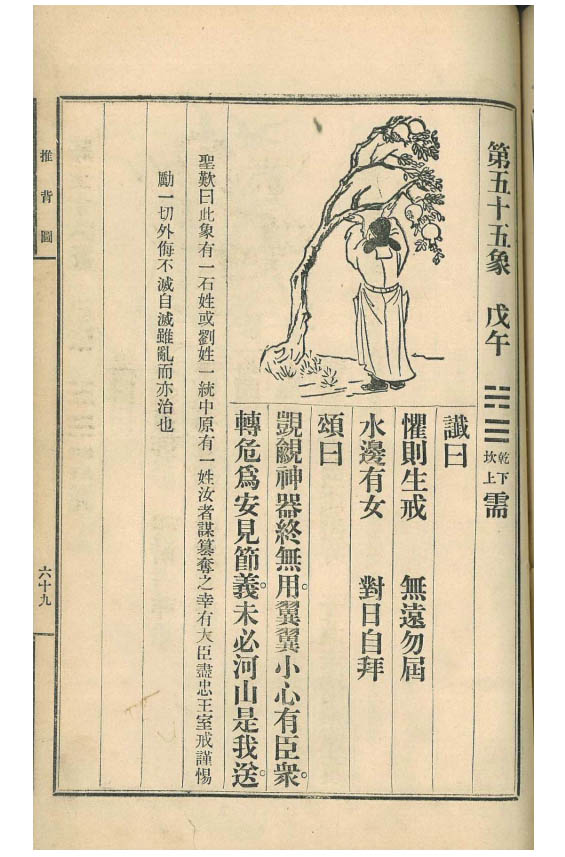 第五十五象　戊午　乾下坎上　需
讖曰
懼則生戒　無遠勿屆
水邊有女　對日自拜
頌曰
覬覦神器終無用。翼翼小心有臣衆。
轉危爲安見節義。未必河山是我送。
聖歎曰此象有一石姓或劉姓一統中原有一姓汝者謀篡奪之幸有大臣盡忠王室戒謹惕
勵一切外侮不滅自滅雖亂而亦治也
推背圖
六十九